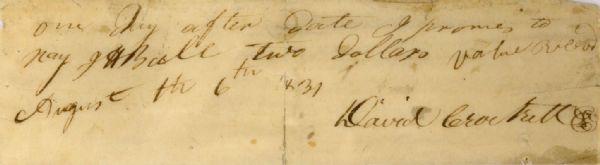 one Day after Date I promis to
pay J H Ball Two Dollars value Recvd
August the 6th 1831
David Crockett